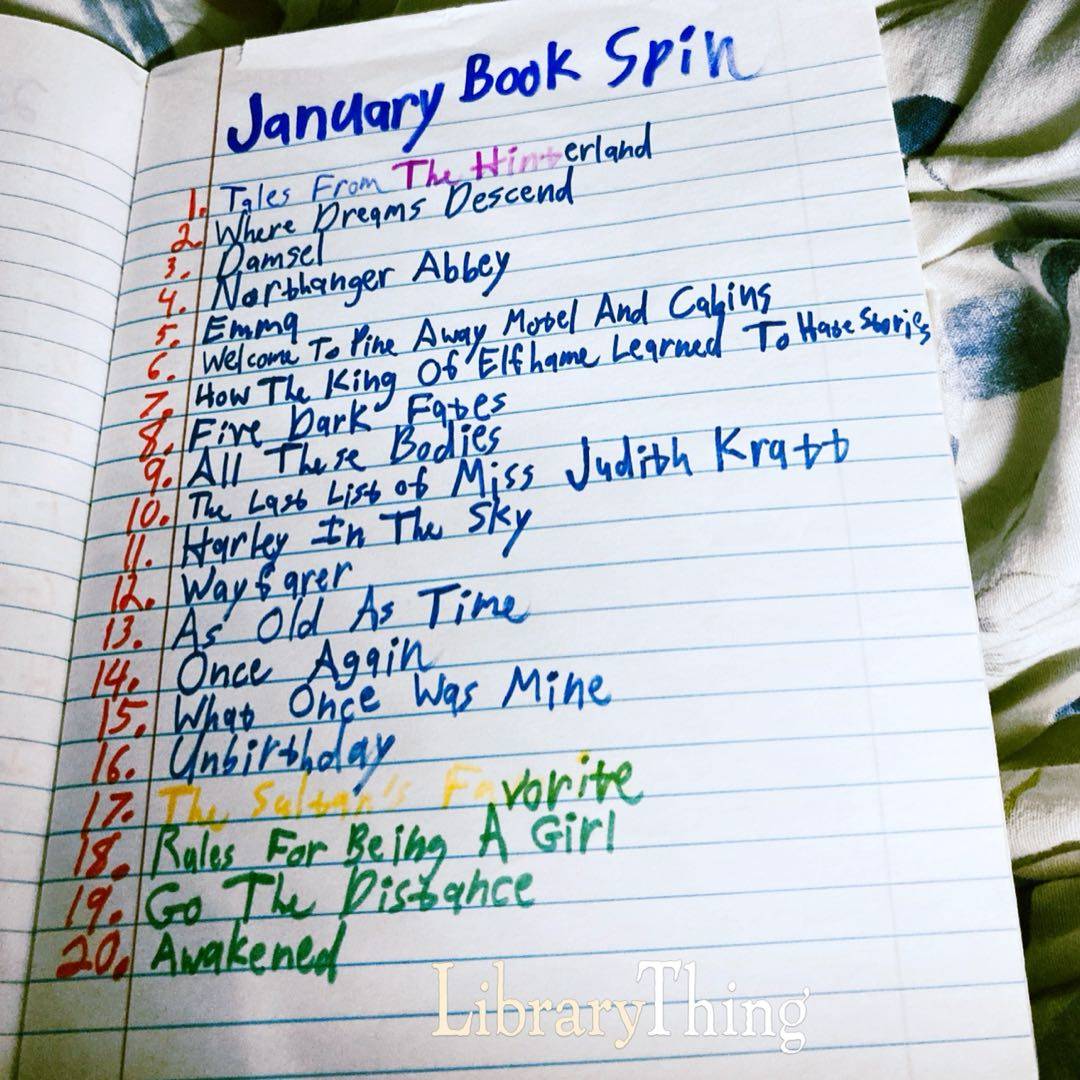 January Book Spin
1. Tales From The Hinterland
2. Where Dreams Descend
3. Damsel
4. Northanger Abbey
5. Emma
6. Welcome To Pine Away Motel And Cabins
7. How The King Of Elfhame Learned To Hate Stories
8. Five Dark Fates
9. All These Bodies
10. The Last List of Miss Judith Kratt
11. Harley In The Sky
12. Wayfarer
13. As Old As Time
14. Once Again
15. What Once Was Mine
16. Unbirthday
17. The Sultan's Favorite
18. Rules For Being A Girl
19. Go The Distance
20. Awakened
LibraryThing